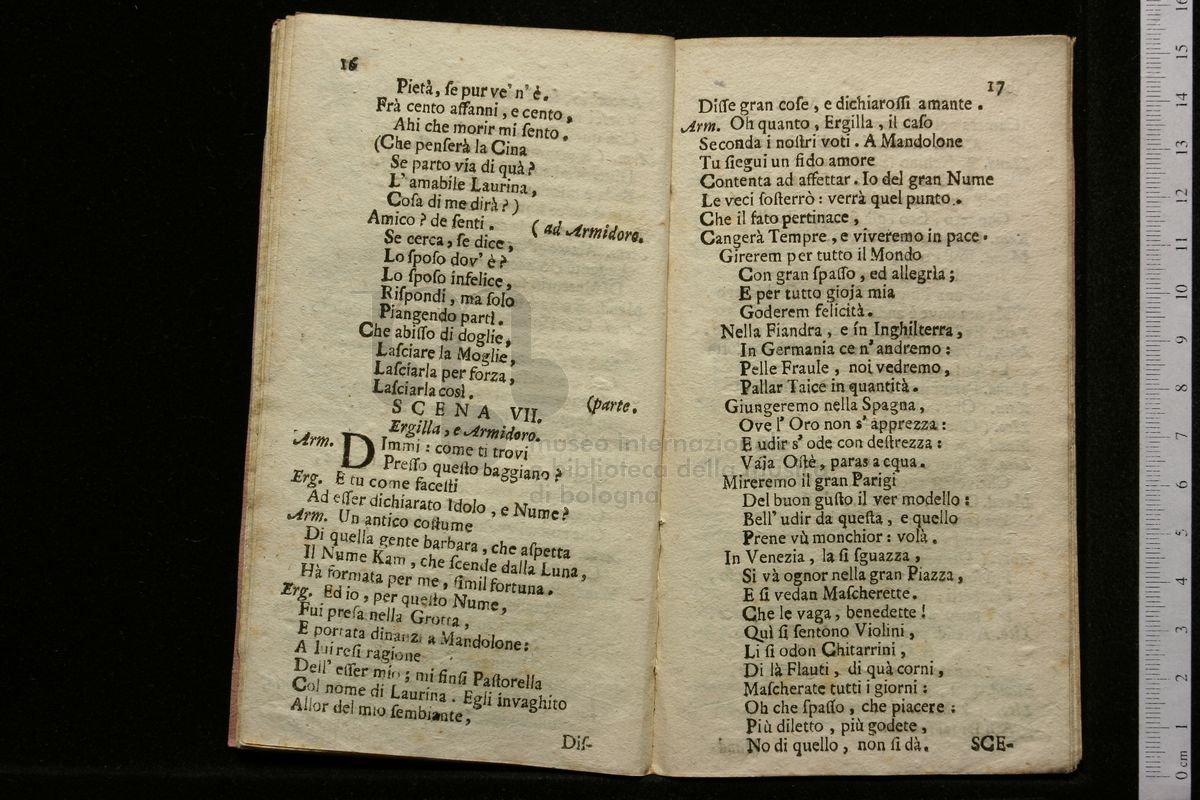 16
Pietà, ſe pur ve' n' è.
Frà cento affanni, e cento,
Ahi che morir mi ſento.
(Che penſerà la Cina
Se parto via di quà?
L' amabile Laurina,
Coſa di me dirà?)
Amico? de ſenti. (ad Armidoro.
Se cerca, ſe dice,
Lo ſpoſo dov' è?
Lo ſpoſo infelice,
Riſpondi, ma ſolo
Piangendo partì.
Che abiſſo di doglie,
Laſciare la Moglie,
Laſciarla per forza,
Laſciarla così. (parte.
SCENA VII.
Ergilla, e Armidoro.
Arm. DImmi: come ti trovi
Preſſo queſto baggiano?
Erg. E tu come faceſti
Ad eſſer dichiarato Idolo, e Nume?
Arm. Un antico coſtume
Di quella gente barbara, che aſpetta
Il Nume Kam, che ſcende dalla Luna,
Hà formata per me, ſimil fortuna.
Erg. Ed io, per queſto Nume,
Fui preſa nella Grotta,
E portata dinanzi a Mandolone:
A lui reſi ragione
Dell' eſſer mio; mi finſi Paſtorella
Col nome di Laurina. Egli invaghito
Allor del mio ſembiante,
Diſ-
17
Diſſe gran coſe, e dichiaroſſi amante.
Arm. Oh quanto, Ergilla, il caſo
Seconda i noſtri voti. A Mandolone
Tu ſiegui un fido amore
Contenta ad affettar. Io del gran Nume
Le veci ſoſterrò: verrà quel punto.
Che il fato pertinace,
Cangerà Tempre, e viveremo in pace.
Girerem per tutto il Mondo
Con gran ſpaſſo, ed allegrìa;
E per tutto gioja mia
Goderem felicità.
Nella Fiandra, e in Inghilterra,
In Germania ce n' andremo:
Pelle Fraule, noi vedremo,
Pallar Taice in quantità.
Giungeremo nella Spagna,
Ove l' Oro non s' apprezza:
E udir s' ode con deſtrezza:
Vaja Oſtè, paras acqua.
Mireremo il gran Parigi
Del buon guſto il ver modello:
Bell' udir da queſta, e quello
Prene vù monchior: volà.
In Venezia, la ſi ſguazza,
Si và ognor nella gran Piazza,
E ſi vedan Maſcherette.
Che le vaga, benedette!
Quì ſi ſentono Violini,
Li ſi odon Chitarrini,
Di là Flauti, di quà corni,
Maſcherate tutti i giorni:
Oh che ſpaſſo, che piacere:
Più diletto, più godete,
No di quello, non ſi dà.
SCE-
museo internazionale
e biblioteca della musica
di bologna
0 cm 1 2 3 4 5 6 7 8 9 10 11 12 13 14 15 16